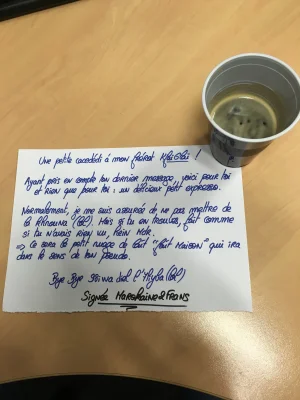 Une petite cacedédi à mon frérot Khaïlaï !
Ayant pris en compte ton dernier message, voici pour toi
et rien que pour toi : un délicieux petit expresso.
Normalement, je me suis assuré de ne pas mettre de
la (lol). Mais si tu en trouves, fait comme
si tu n'avais rien vu, hein Mdr.
=> Ce sera le petit nuage de lait "fait maison" qui ira
dans le sens de ton pseudo.
Bye Bye (lol)
Signée Marshaine2Frans